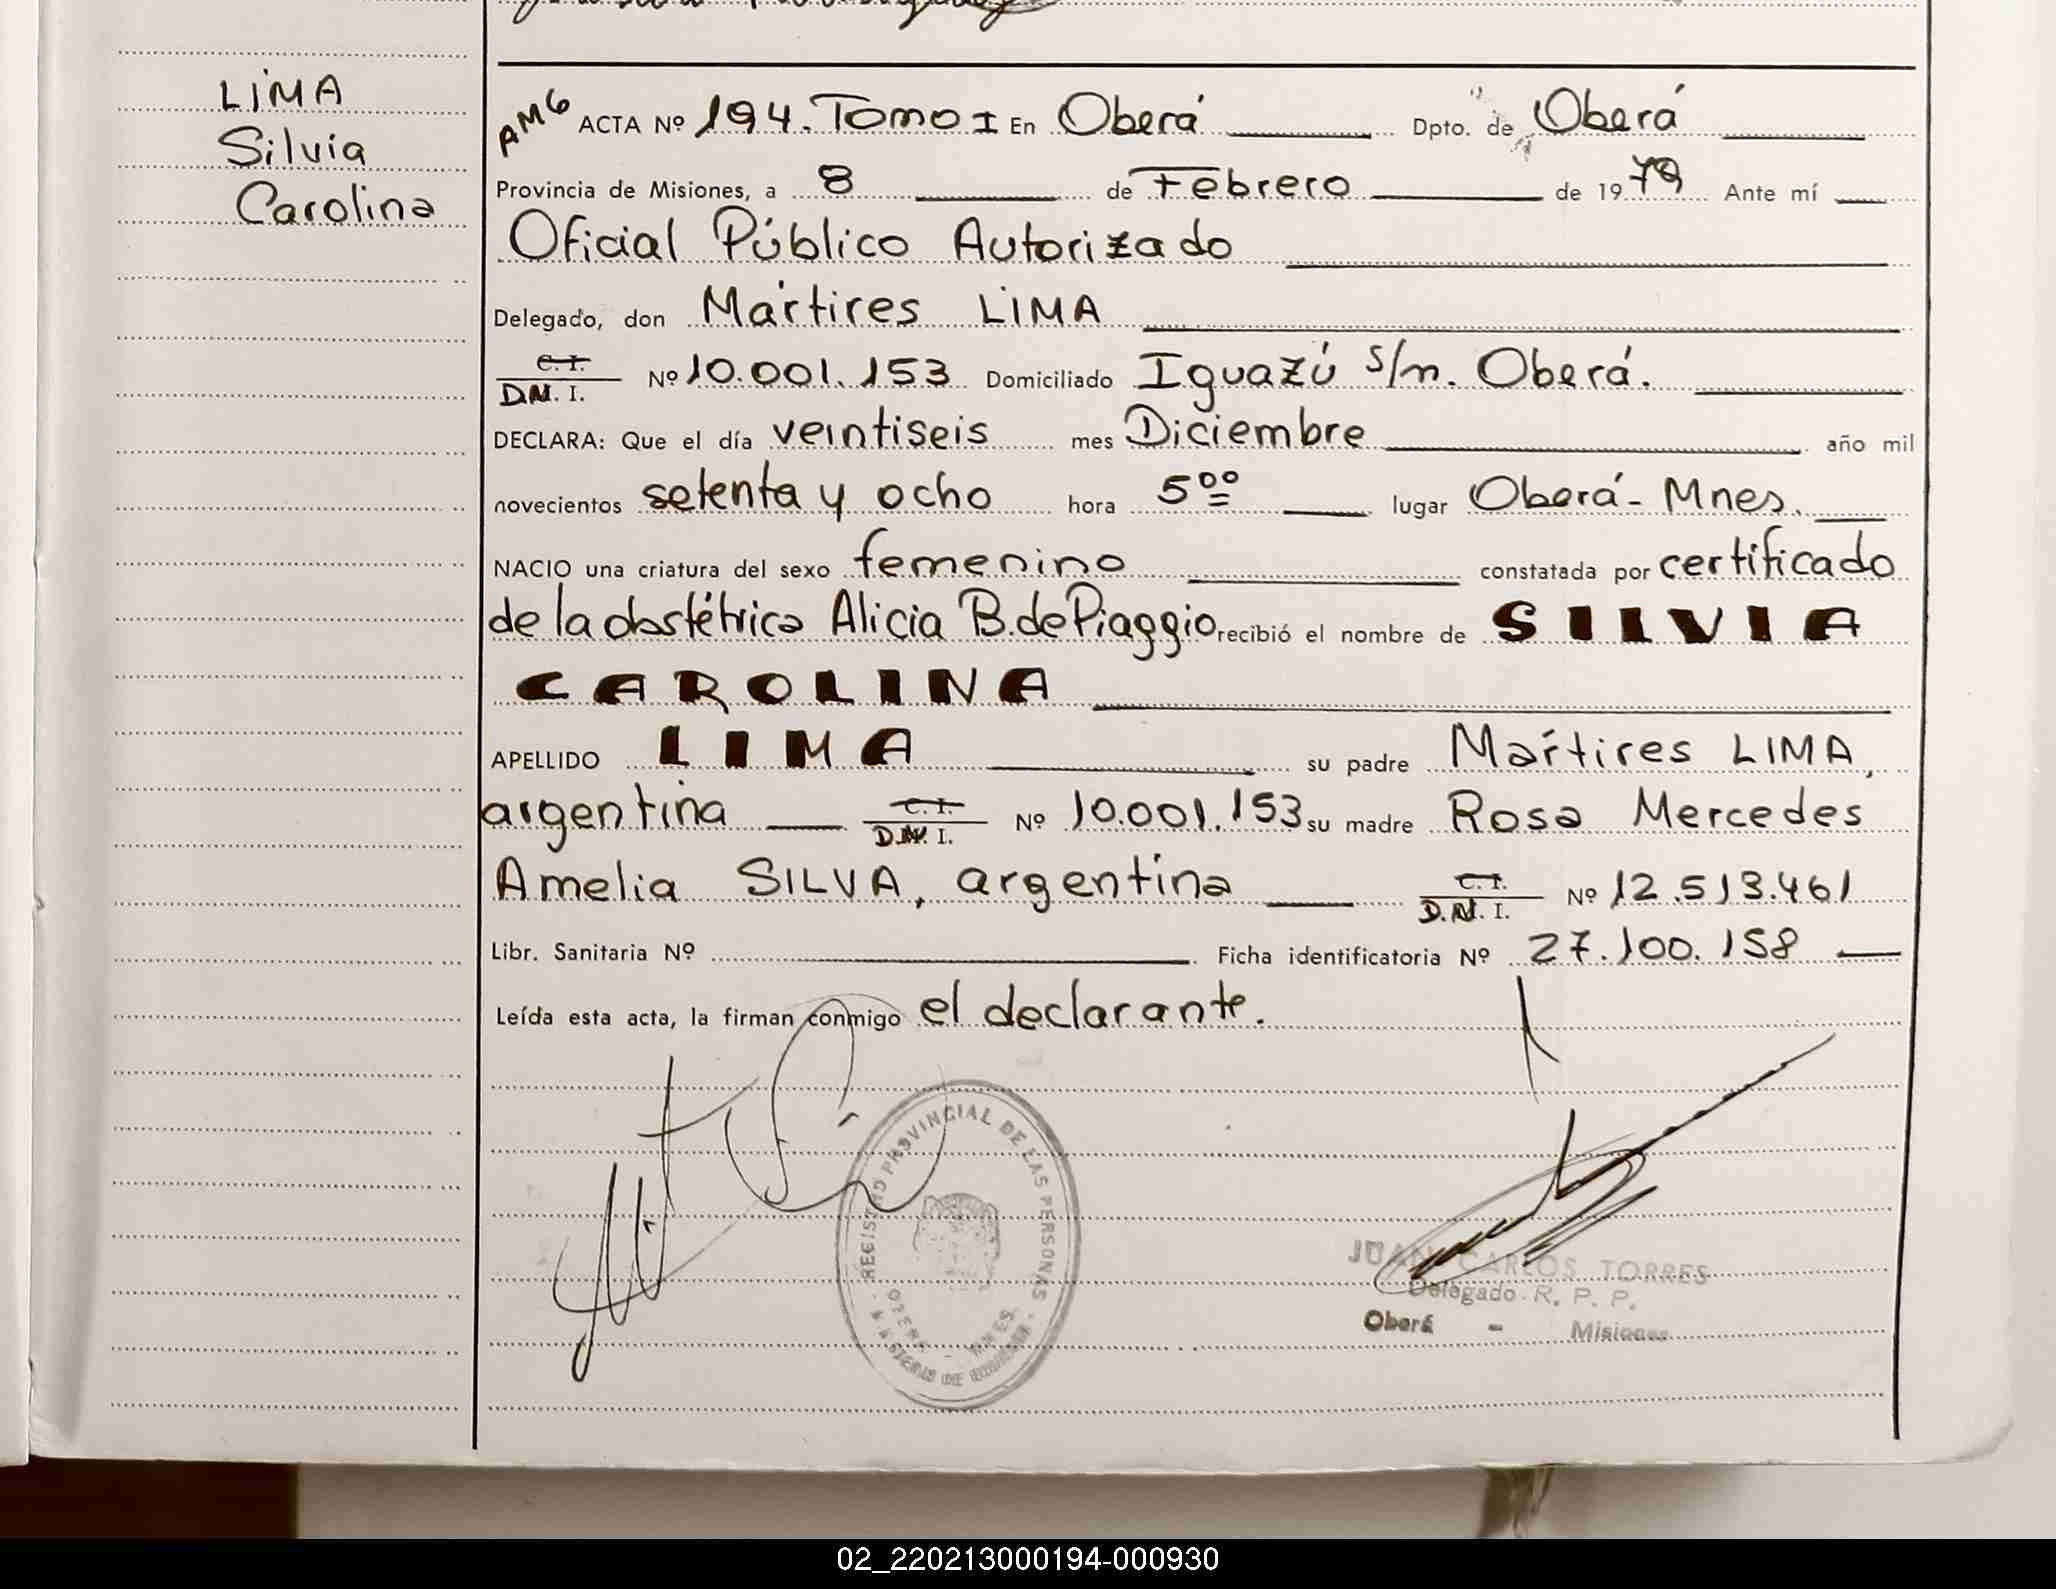 LIMA
Silvia
Carolina
AMG ACTA Nº 194. Tomo I En Oberá Dpto. de Oberá
Provincia de Misiones, a 8 de Febrero de 1979 Ante mí
Oficial Público Autorizado
Delegado, don Mártires LIMA
C. I.
D.N. I. Nº 10.001.153 Domiciliado Iguazú s/n. Oberá.
DECLARA: Que el día veintiseis mes Diciembre año mil
novecientos setenta y ocho hora 5⁰⁰ lugar Oberá - Mnes.
NACIO una criatura del sexo femenino constatada por certificado
de la obstétrica Alicia B. de Piaggio recibió el nombre de SILVIA
CAROLINA
APELLIDO LIMA su padre Mártires LIMA,
argentina C. I. D.N. I. Nº 10.001.153 su madre Rosa Mercedes
Amelia SILVA, argentina C. I. D.N. I. Nº 12.513.461
Libr. Sanitaria Nº Ficha identificatoria Nº 27.100.158
Leída esta acta, la firman conmigo el declarante.
REGISTRO PROVINCIAL DE LAS PERSONAS
JUAN CARLOS TORRES
Delegado R. P. P.
Oberá - Misiones
02_220213000194-000930